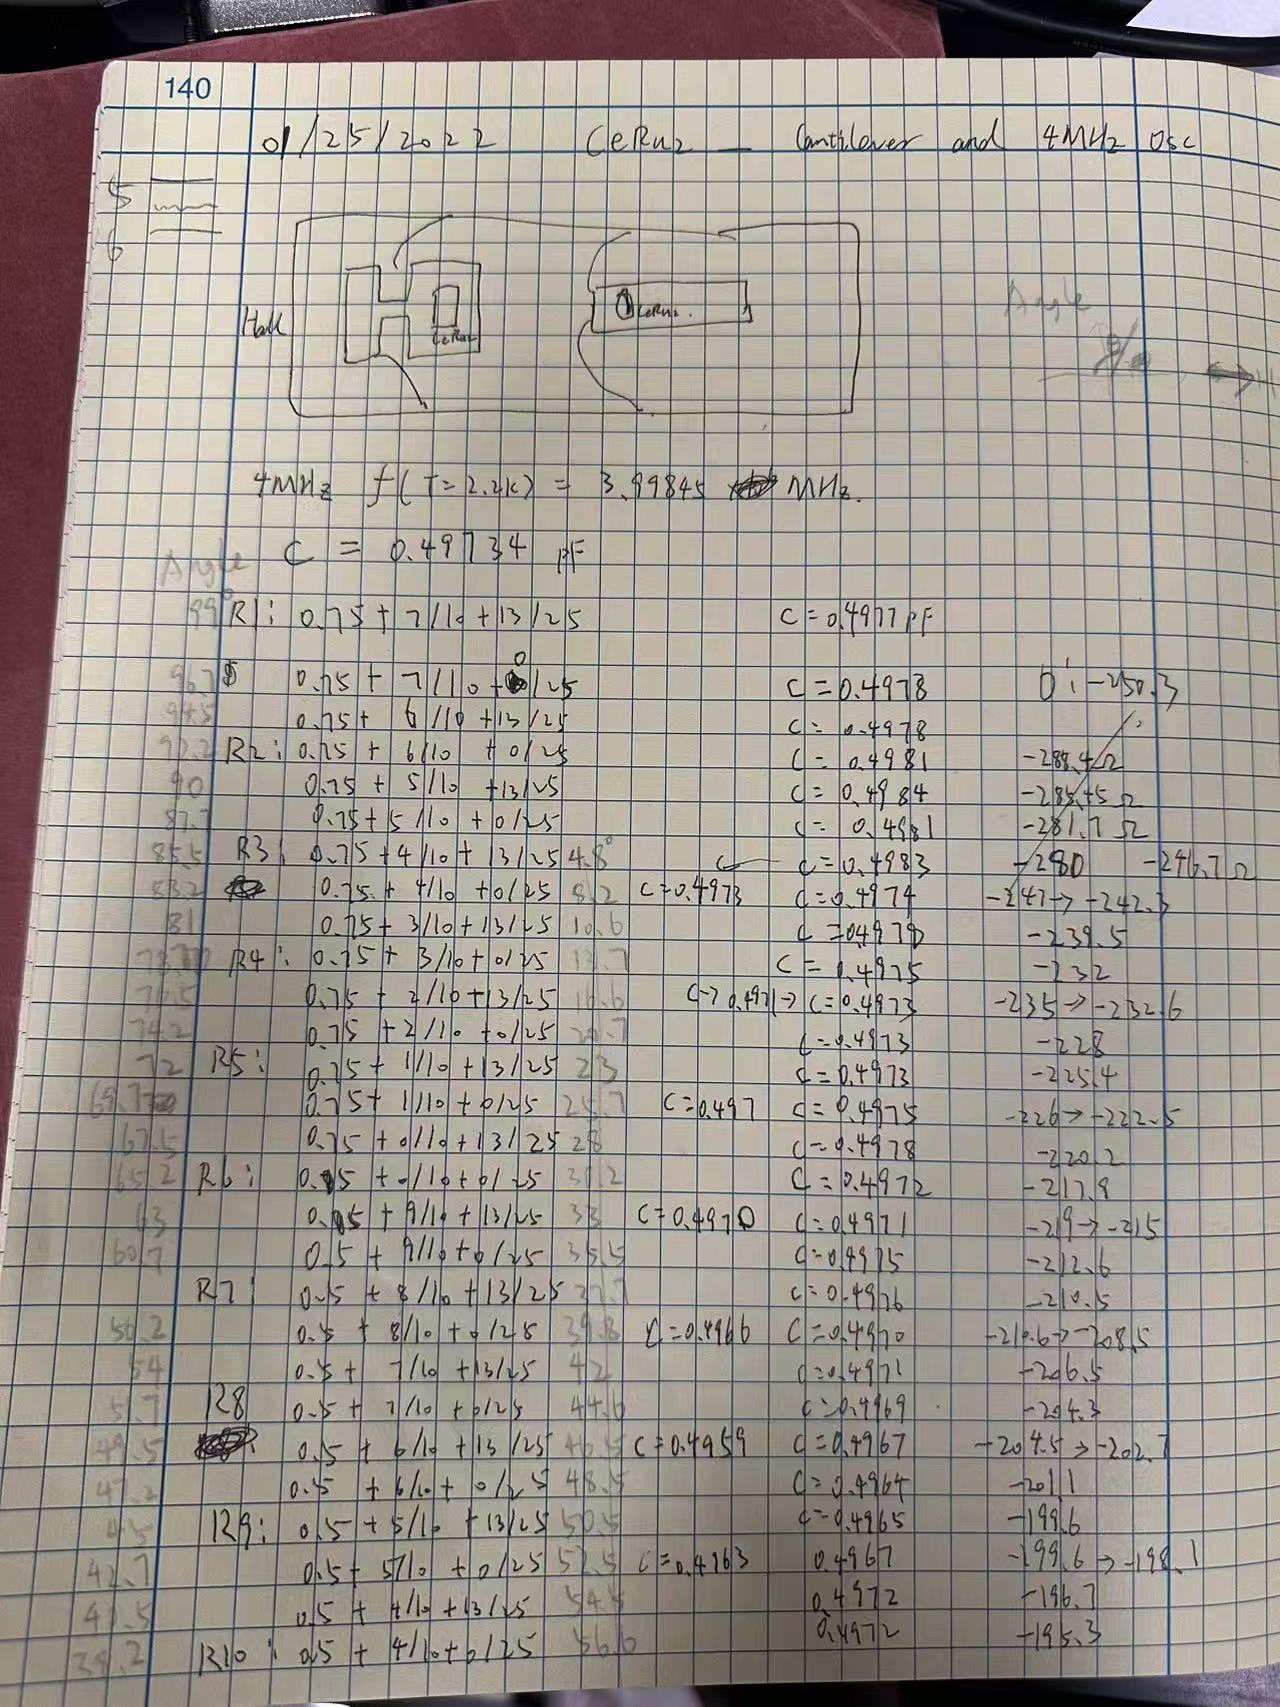 140
01/25/2022 CeRu2 — Cantilever and 4MHz Osc
5
6
Angle
Hall CeRu2 CeRu2.
4MHz f(T=2.2K) = 3.99845 MHz.
Angle C = 0.49734 pF
99° R1: 0.75 + 7/10 + 13/25 C = 0.4977 pF
96.7 0.75 + 7/10 + 0/25 C = 0.4978 0°: -250.3
94.5 0.75 + 6/10 + 13/25 C = 0.4978
92.2 R2: 0.75 + 6/10 + 0/25 C = 0.4981 -288.4Ω
90 0.75 + 5/10 + 13/25 C = 0.4984 -285.45Ω
87.7 0.75 + 5/10 + 0/25 C = 0.4981 -281.7Ω
85.5 R3: 0.75 + 4/10 + 13/25 4.8° C = 0.4983 -280 -246.7Ω
83.2 0.75 + 4/10 + 0/25 8.2 C = 0.4973 C = 0.4974 -247 → -242.3
81 0.75 + 3/10 + 13/25 10.6 -239.5
R4: 0.75 + 3/10 + 0/25 13.7 C = 0.4975 -232
76.5 0.75 + 2/10 + 13/25 16.6 C → 0.4971 → C = 0.4973 -235 → -232.6
74.2 0.75 + 2/10 + 0/25 20.7 C = 0.4973 -228
72 R5: 0.75 + 1/10 + 13/25 23 C = 0.4973 -225.4
69.7 0.75 + 1/10 + 0/25 25.7 C = 0.497 C = 0.4975 -226 → -222.5
67.5 0.75 + 0/10 + 13/25 28 C = 0.4978 -220.2
65.2 R6: 0.75 + 0/10 + 0/25 30.2 C = 0.4972 -217.8
63 0.5 + 9/10 + 13/25 33 C = 0.4970 C = 0.4971 -219 → -215
60.7 0.5 + 9/10 + 0/25 35.5 C = 0.4975 -212.6
R7: 0.5 + 8/10 + 13/25 37.7 C = 0.4976 -210.5
56.2 0.5 + 8/10 + 0/25 39.8 C = 0.4966 C = 0.4970 -210.6 → -208.5
54 0.5 + 7/10 + 13/25 42 C = 0.4971 -206.5
51.7 R8 0.5 + 7/10 + 0/25 44.6 C = 0.4969 -204.3
49.5 0.5 + 6/10 + 13/25 46.5 C = 0.4959 C = 0.4967 -204.5 → -202.7
47.2 0.5 + 6/10 + 0/25 48.5 C = 0.4964 -201.1
45 R9: 0.5 + 5/10 + 13/25 50.5 C = 0.4965 -199.6
42.7 0.5 + 5/10 + 0/25 52.5 C = 0.4963 0.4967 -199.6 → -198.1
40.5 0.5 + 4/10 + 13/25 54.5 0.4972 -196.7
38.2 R10: 0.5 + 4/10 + 0/25 56.6 0.4972 -195.3